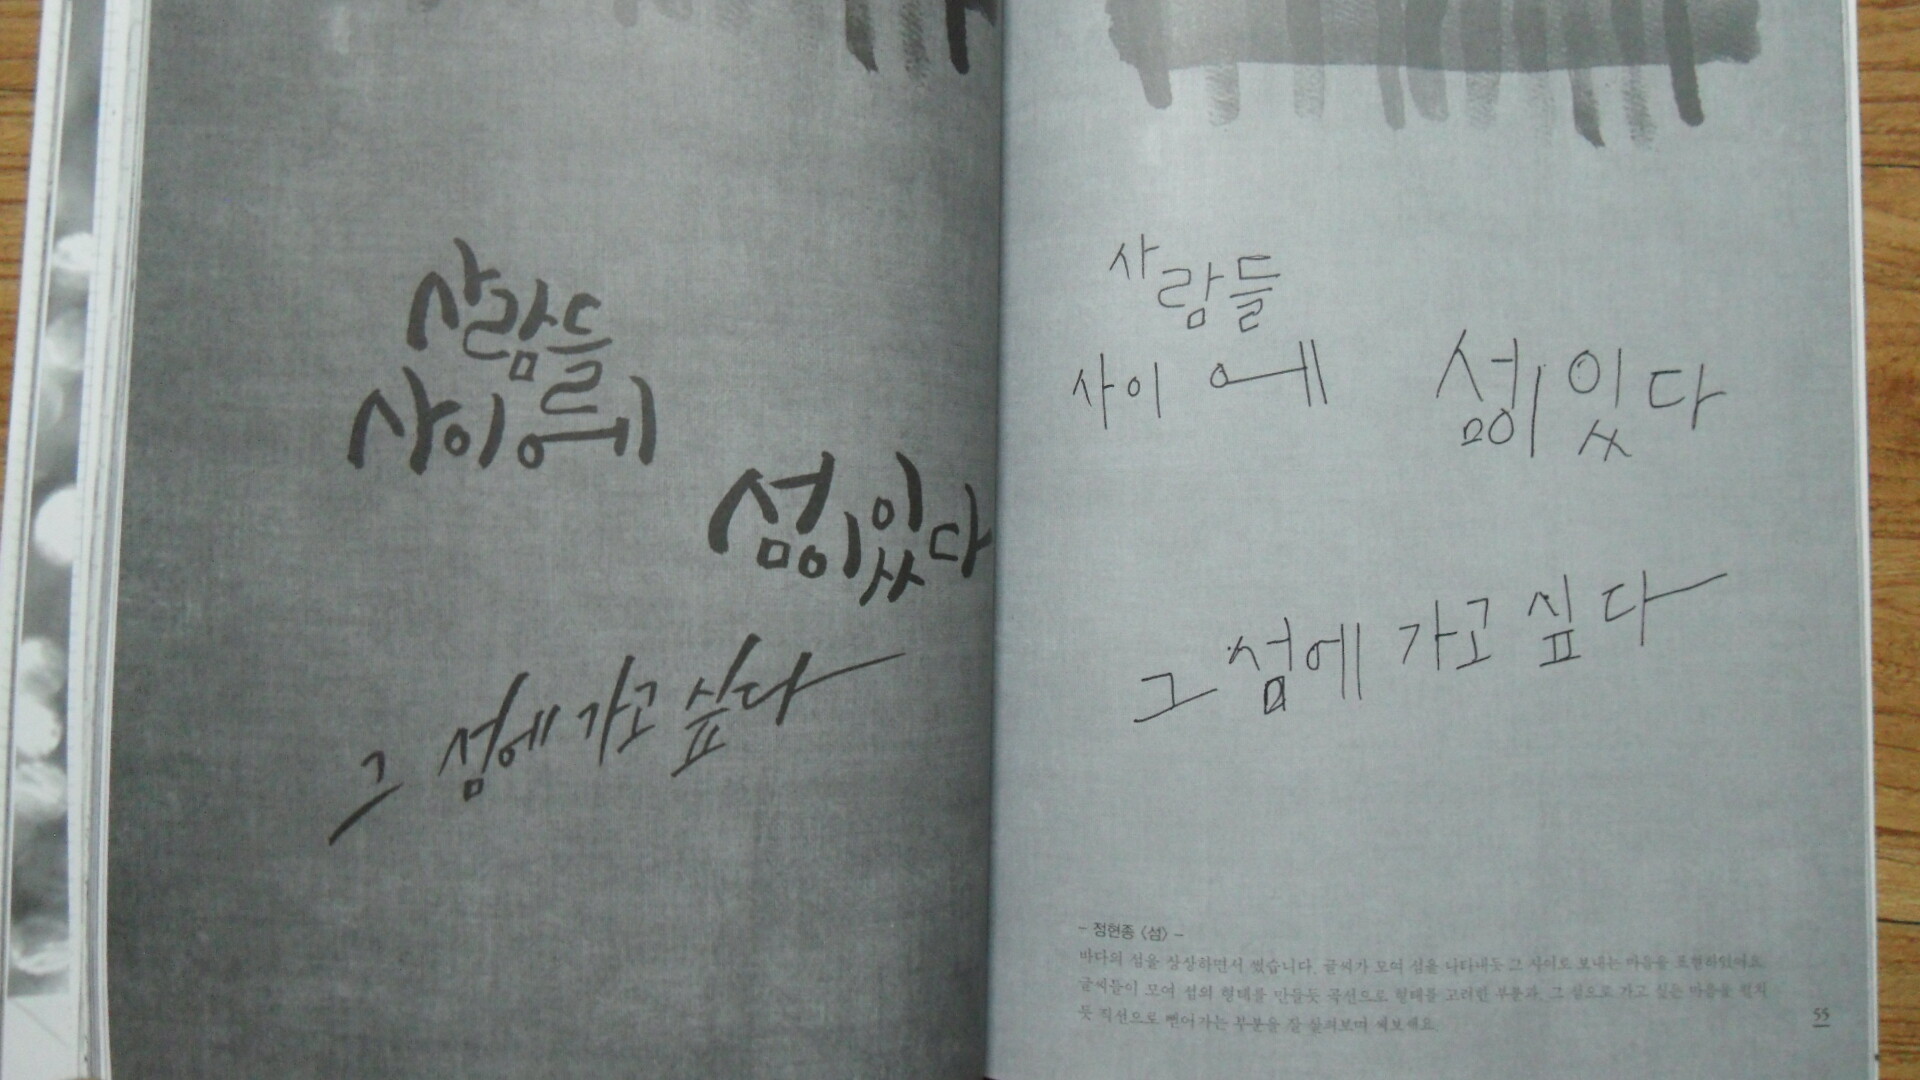 사람들
사이에
섬이 있다
그 섬에 가고 싶다
사람들
사이에 섬이 있다
그 섬에 가고 싶다
- 정현종 〈섬〉 -
바다의 섬을 상상하면서 썼습니다. 글씨가 모여 섬을 나타내듯 그 사이로 보내는 마음을 표현하였어요.
글씨들이 모여 섬의 형태를 만들듯 곡선으로 형태를 고려한 부분과, 그 섬으로 가고 싶은 마음을 펼치
듯 직선으로 뻗어가는 부분을 잘 살펴보며 써보세요.
55